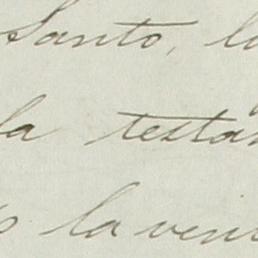 Santo, la
la testa
la ven